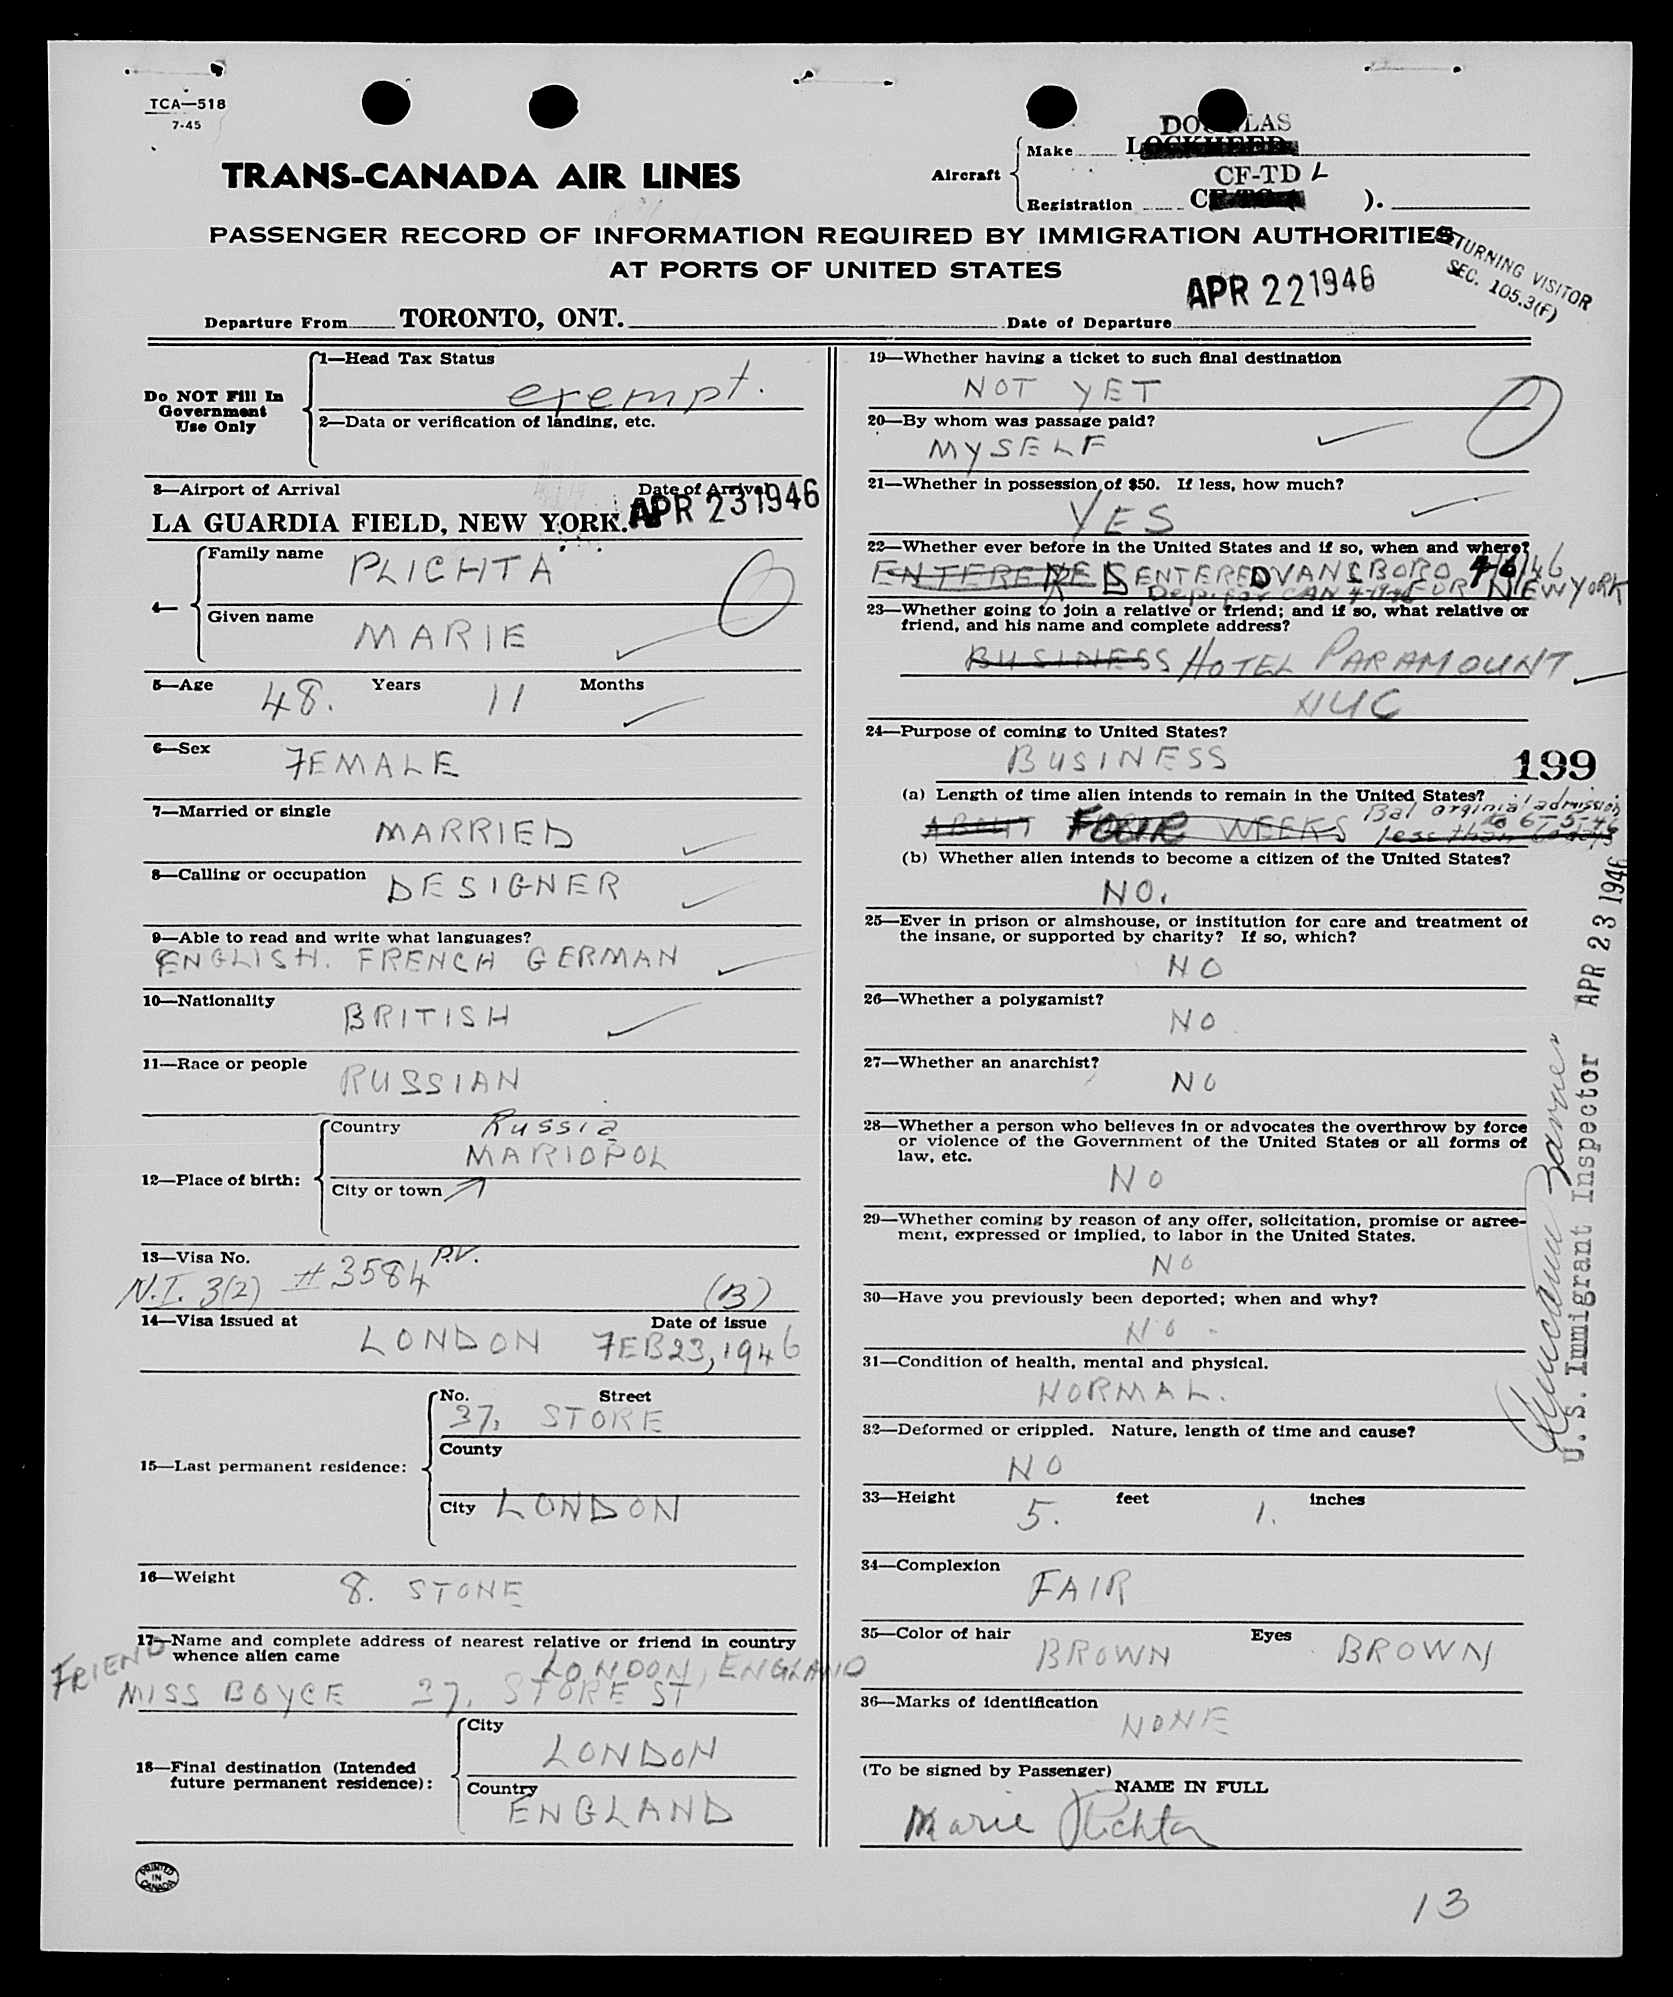 TCA—518
7-45
DOUGLAS
Make LOCKHEED
TRANS-CANADA AIR LINES
Aircraft
CF-TD L
Registration ).
PASSENGER RECORD OF INFORMATION REQUIRED BY IMMIGRATION AUTHORITIES
AT PORTS OF UNITED STATES
TURNING VISITOR
SEC. 105.3(F)
APR 22 1946
Departure From TORONTO, ONT. Date of Departure
Do NOT Fill In
Government
Use Only
1—Head Tax Status
exempt.
2—Data or verification of landing, etc.
3—Airport of Arrival Date of Arrival
LA GUARDIA FIELD, NEW YORK. APR 23 1946
4—
Family name PLICHTA
Given name
MARIE
5—Age 48. Years 11 Months
6—Sex
FEMALE
7—Married or single
MARRIED
8—Calling or occupation DESIGNER
9—Able to read and write what languages?
ENGLISH. FRENCH GERMAN
10—Nationality
BRITISH
11—Race or people
RUSSIAN
12—Place of birth:
Country Russia
MARIOPOL
City or town
13—Visa No.
N.I. 3(2) #3584 P.V. (B)
14—Visa issued at Date of issue
LONDON FEB 23, 1946
15—Last permanent residence:
No. Street
37, STORE
County
City LONDON
16—Weight
8. STONE
17—Name and complete address of nearest relative or friend in country
whence alien came
FRIEND LONDON, ENGLAND
MISS BOYCE 37, STORE ST
18—Final destination (Intended
future permanent residence):
City
LONDON
Country
ENGLAND
PRINTED
IN
CANADA
19—Whether having a ticket to such final destination
NOT YET
20—By whom was passage paid?
MYSELF
21—Whether in possession of $50. If less, how much?
YES
22—Whether ever before in the United States and if so, when and where?
ENTERED VANCBORO 4/6/46
Dep. for CAN FOR NEW YORK
23—Whether going to join a relative or friend; and if so, what relative or
friend, and his name and complete address?
BUSINESS HOTEL PARAMOUNT
NYC
24—Purpose of coming to United States?
BUSINESS
199
(a) Length of time alien intends to remain in the United States?
Bal orginial admission
to 6-5-46
ABOUT FOUR WEEKS less than 60 days
(b) Whether alien intends to become a citizen of the United States?
NO.
25—Ever in prison or almshouse, or institution for care and treatment of
the insane, or supported by charity? If so, which?
NO
26—Whether a polygamist?
NO
27—Whether an anarchist?
NO
28—Whether a person who believes in or advocates the overthrow by force
or violence of the Government of the United States or all forms of
law, etc.
NO
29—Whether coming by reason of any offer, solicitation, promise or agree-
ment, expressed or implied, to labor in the United States.
NO
30—Have you previously been deported; when and why?
NO -
31—Condition of health, mental and physical.
NORMAL.
32—Deformed or crippled. Nature, length of time and cause?
NO
33—Height 5. feet 1. inches
34—Complexion
FAIR
35—Color of hair BROWN Eyes BROWN
36—Marks of identification
NONE
(To be signed by Passenger)
NAME IN FULL
Marie Plichta
APR 23 1946
U. S. Immigrant Inspector
13